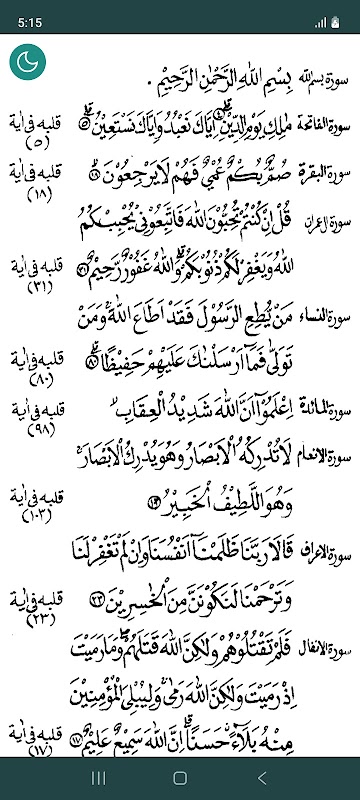 5:15
سورة بسم الله بِسْمِ اللهِ الرَّحْمٰنِ الرَّحِيْمِ .
سورة الفاتحة مٰلِكِ يَوْمِ الدِّيْنِ ④ اِيَّاكَ نَعْبُدُ وَاِيَّاكَ نَسْتَعِيْنُ ⑤ قلبه فى اية (٥)
سورة البقرة صُمٌّ بُكْمٌ عُمْيٌ فَهُمْ لَا يَرْجِعُوْنَ ⑱ قلبه فى اية (١٨)
سورة ال عمران قُلْ اِنْ كُنْتُمْ تُحِبُّوْنَ اللهَ فَاتَّبِعُوْنِيْ يُحْبِبْكُمُ
اللهُ وَيَغْفِرْ لَكُمْ ذُنُوْبَكُمْ وَاللهُ غَفُوْرٌ رَّحِيْمٌ ㉛ قلبه فى اية (٣١)
سورة النساء مَنْ يُّطِعِ الرَّسُوْلَ فَقَدْ اَطَاعَ اللهَ وَمَنْ
تَوَلّٰى فَمَآ اَرْسَلْنٰكَ عَلَيْهِمْ حَفِيْظًا ۸۰ قلبه فى اية (٨٠)
سورة المائدة اِعْلَمُوْٓا اَنَّ اللهَ شَدِيْدُ الْعِقَابِ قلبه فى اية (٩٨)
سورة الانعام لَا تُدْرِكُهُ الْاَبْصَارُ وَهُوَ يُدْرِكُ الْاَبْصَارَ
وَهُوَ اللَّطِيْفُ الْخَبِيْرُ قلبه فى اية (١٠٣)
سورة الاعراف قَالَا رَبَّنَا ظَلَمْنَآ اَنْفُسَنَا وَاِنْ لَّمْ تَغْفِرْ لَنَا
وَتَرْحَمْنَا لَنَكُوْنَنَّ مِنَ الْخٰسِرِيْنَ ㉓ قلبه فى اية (٢٣)
سورة الانفال فَلَمْ تَقْتُلُوْهُمْ وَلٰكِنَّ اللهَ قَتَلَهُمْ وَمَا رَمَيْتَ
اِذْ رَمَيْتَ وَلٰكِنَّ اللهَ رَمٰى وَلِيُبْلِيَ الْمُؤْمِنِيْنَ
مِنْهُ بَلَآءً حَسَنًا اِنَّ اللهَ سَمِيْعٌ عَلِيْمٌ ⑰ قلبه فى اية (١٧)